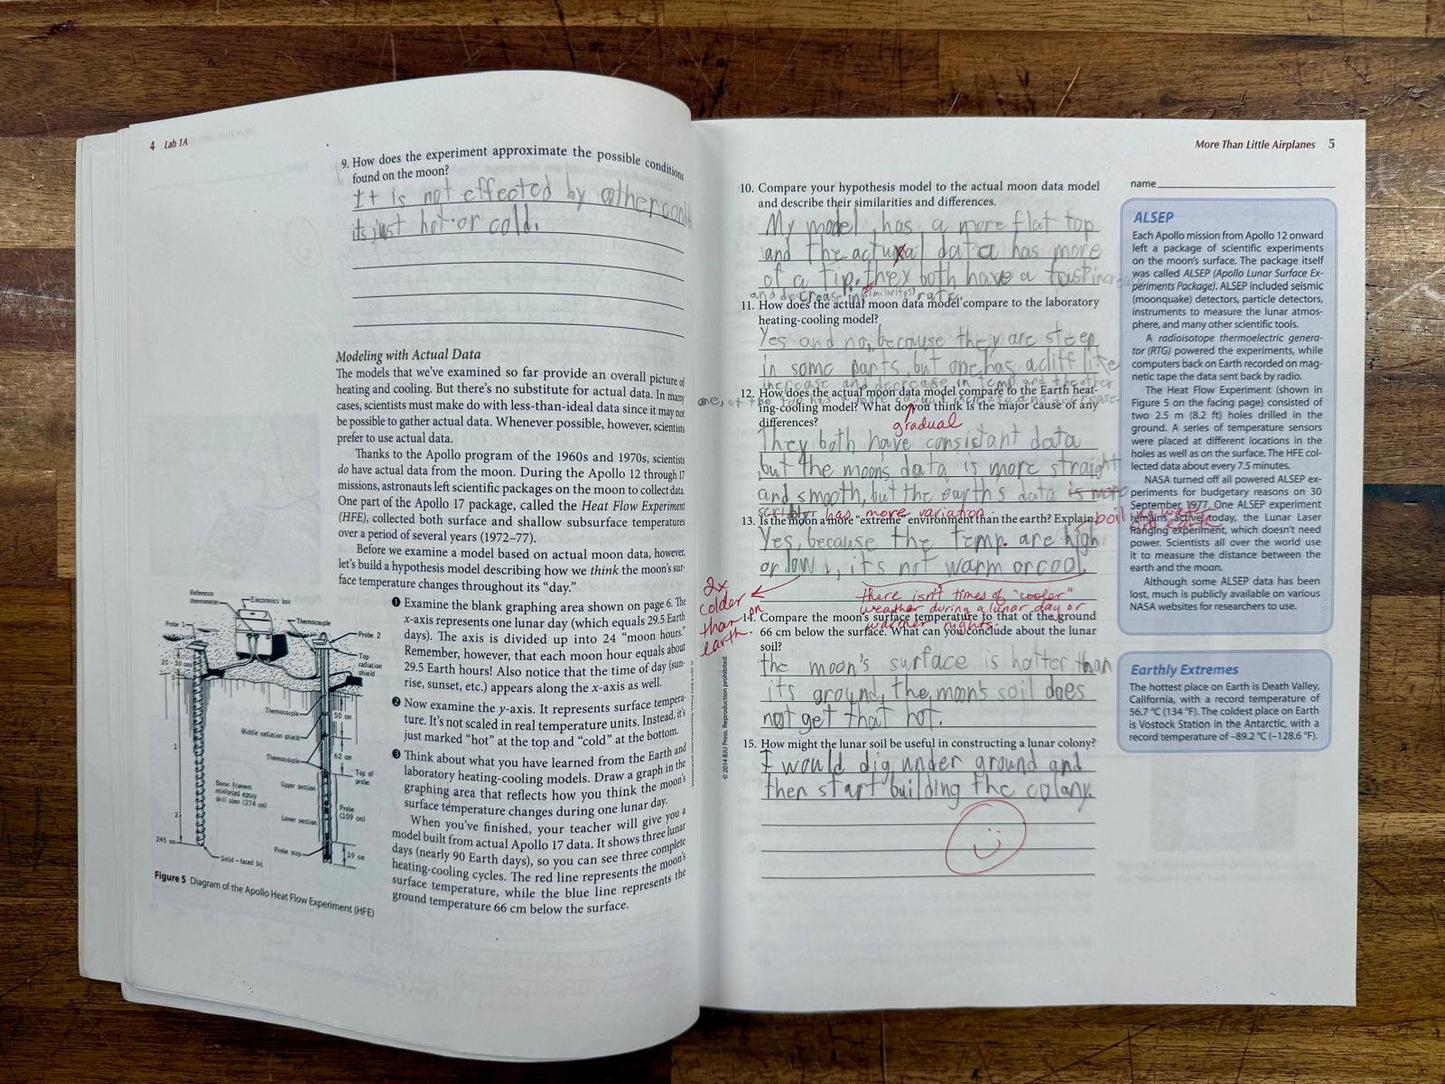 4 Lab 1A
9. How does the experiment approximate the possible conditions
found on the moon?
It is not effected by other
its just hot or cold.
Modeling with Actual Data
The models that we've examined so far provide an overall picture of
heating and cooling. But there's no substitute for actual data. In many
cases, scientists must make do with less-than-ideal data since it may not
be possible to gather actual data. Whenever possible, however, scientists
prefer to use actual data.
Thanks to the Apollo program of the 1960s and 1970s, scientists
do have actual data from the moon. During the Apollo 12 through 17
missions, astronauts left scientific packages on the moon to collect data.
One part of the Apollo 17 package, called the Heat Flow Experiment
(HFE), collected both surface and shallow subsurface temperatures
over a period of several years (1972–77).
Before we examine a model based on actual moon data, however,
let's build a hypothesis describing how we think the moon's sur-
face temperature changes throughout its "day."
1 Examine the blank graphing area shown on page 6. The
x-axis represents one lunar day (which equals 29.5 Earth
days). The axis is divided up into 24 "moon hours."
Remember, however, that each moon hour equals about
29.5 Earth hours! Also notice that the time of day (sun-
rise, sunset, etc.) appears along the x-axis as well.
2 Now examine the y-axis. It represents surface tempera-
ture. It's not scaled in real temperature units. Instead, it's
just marked "hot" at the top and "cold" at the bottom.
3 Think about what you have learned from the Earth and
laboratory heating-cooling models. Draw a graph in the
graphing area that reflects how you think the moon's
surface temperature changes during one lunar day.
When you've finished, your teacher will give you a
model built from actual Apollo 17 data. It shows three lunar
days (nearly 90 Earth days), so you can see three complete
heating-cooling cycles. The red line represents the moon's
surface temperature, while the blue line represents the
ground temperature 66 cm below the surface.
Reference
thermometer
Electronics box
Thermocouple
Probe 1
Probe 2
Top
radiation
shield
20 - 30 cm
Thermocouple
50 cm
Middle radiation shield
62 cm
Thermocouple
1
Top of
probe
Upper section
Boron filament
reinforced epoxy
drill stem (274 cm)
Probe
(109 cm)
2
Lower section
245 cm
Probe stop
19 cm
Solid - faced bit
Figure 5 Diagram of the Apollo Heat Flow Experiment (HFE)
More Than Little Airplanes 5
name
10. Compare your hypothesis model to the actual moon data model
and describe their similarities and differences.
My model has a more flat top
and the actual data has more
of a tip. they both have a fast increase
and decrease in (similaritys) rate.
11. How does the actual moon data model compare to the laboratory
heating-cooling model?
Yes and no, because they are steep
in some parts, but one has a cliff like
increase and decrease in temp and the other
one, at the top has a more gradual increase and decrease.
12. How does the actual moon data model compare to the Earth heat-
ing-cooling model? What do you think is the major cause of any
differences?
gradual
They both have consistant data
but the moons data is more straight
and smooth, but the earths data is more
has more variation
13. Is the moon a more "extreme" environment than the earth? Explain.
Yes, because the temp. are high
or low, it's not warm or cool.
2x
colder
than on
earth.
there isn't times of "cooler"
weather during a lunar day or
warmer nights.
14. Compare the moon's surface temperature to that of the ground
66 cm below the surface. What can you conclude about the lunar
soil?
the moon's surface is hotter than
its ground, the moon's soil does
not get that hot.
15. How might the lunar soil be useful in constructing a lunar colony?
I would dig under ground and
then start building the colany.
© 2014 BJU Press. Reproduction prohibited.
ALSEP
Each Apollo mission from Apollo 12 onward
left a package of scientific experiments
on the moon's surface. The package itself
was called ALSEP (Apollo Lunar Surface Ex-
periments Package). ALSEP included seismic
(moonquake) detectors, particle detectors,
instruments to measure the lunar atmos-
phere, and many other scientific tools.
A radioisotope thermoelectric genera-
tor (RTG) powered the experiments, while
computers back on Earth recorded on mag-
netic tape the data sent back by radio.
The Heat Flow Experiment (shown in
Figure 5 on the facing page) consisted of
two 2.5 m (8.2 ft) holes drilled in the
ground. A series of temperature sensors
were placed at different locations in the
holes as well as on the surface. The HFE col-
lected data about every 7.5 minutes.
NASA turned off all powered ALSEP ex-
periments for budgetary reasons on 30
September 1977. One ALSEP experiment
remains active today, the Lunar Laser
Ranging experiment, which doesn't need
power. Scientists all over the world use
it to measure the distance between the
earth and the moon.
Although some ALSEP data has been
lost, much is publicly available on various
NASA websites for researchers to use.
Earthly Extremes
The hottest place on Earth is Death Valley,
California, with a record temperature of
56.7 °C (134 °F). The coldest place on Earth
is Vostock Station in the Antarctic, with a
record temperature of –89.2 °C (–128.6 °F).